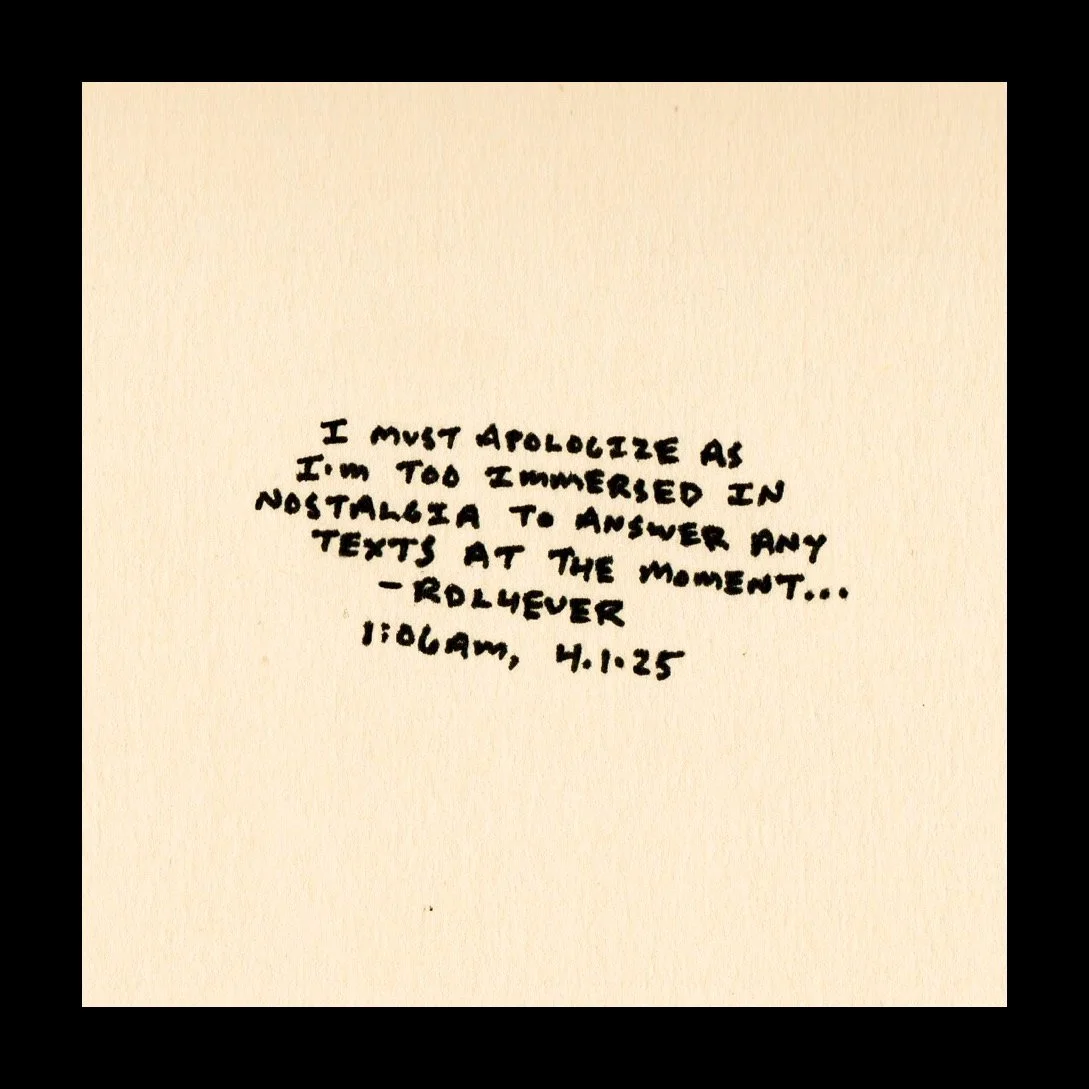 I MUST APOLOGIZE AS
I'M TOO IMMERSED IN
NOSTALGIA TO ANSWER ANY
TEXTS AT THE MOMENT...
- RDL4EVER
1:06AM, 4.1.25